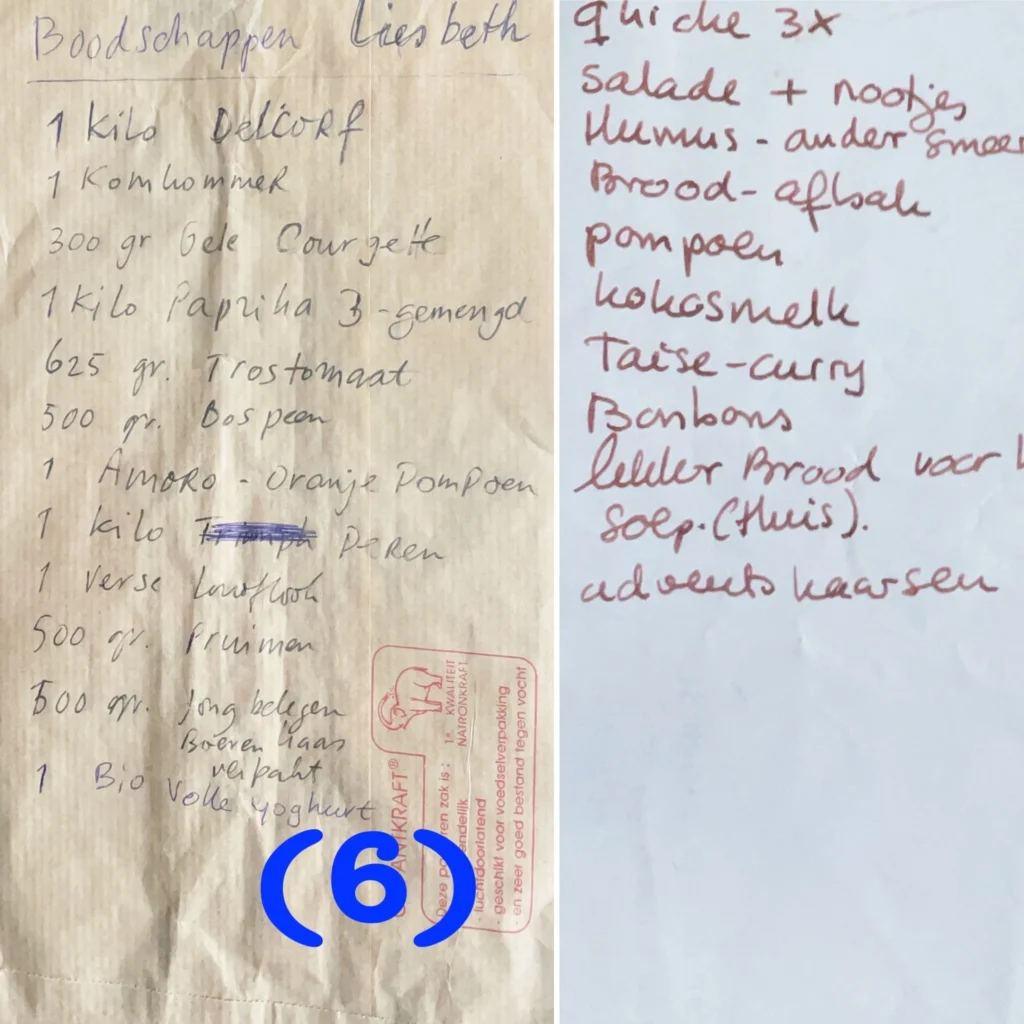 Boodschappen Liesbeth
1 kilo Delcorf
1 Komkommer
300 gr Gele Courgette
1 kilo Paprika 3-gemengd
625 gr. Trostomaat
500 gr. Bospeen
1 Amoro - Oranje Pompoen
1 kilo Peren
1 verse knoflook
500 gr. Pruimen
500 gr. jong belegen
Boeren kaas
verpakt
1 Bio Volle yoghurt
(6)
1e KWALITEIT
NATRONKRAFT
ANTIKRAFT®
ren zak is:
luchtdoorlatend
- geschikt voor voedselverpakking
- en zeer goed bestand tegen vocht
quiche 3x
salade + nootjes
Humus - ander smeer
Brood - afbak
pompoen
kokosmelk
Taise-curry
Bonbons
lekker Brood voor
soep. (thuis).
advents kaarsen